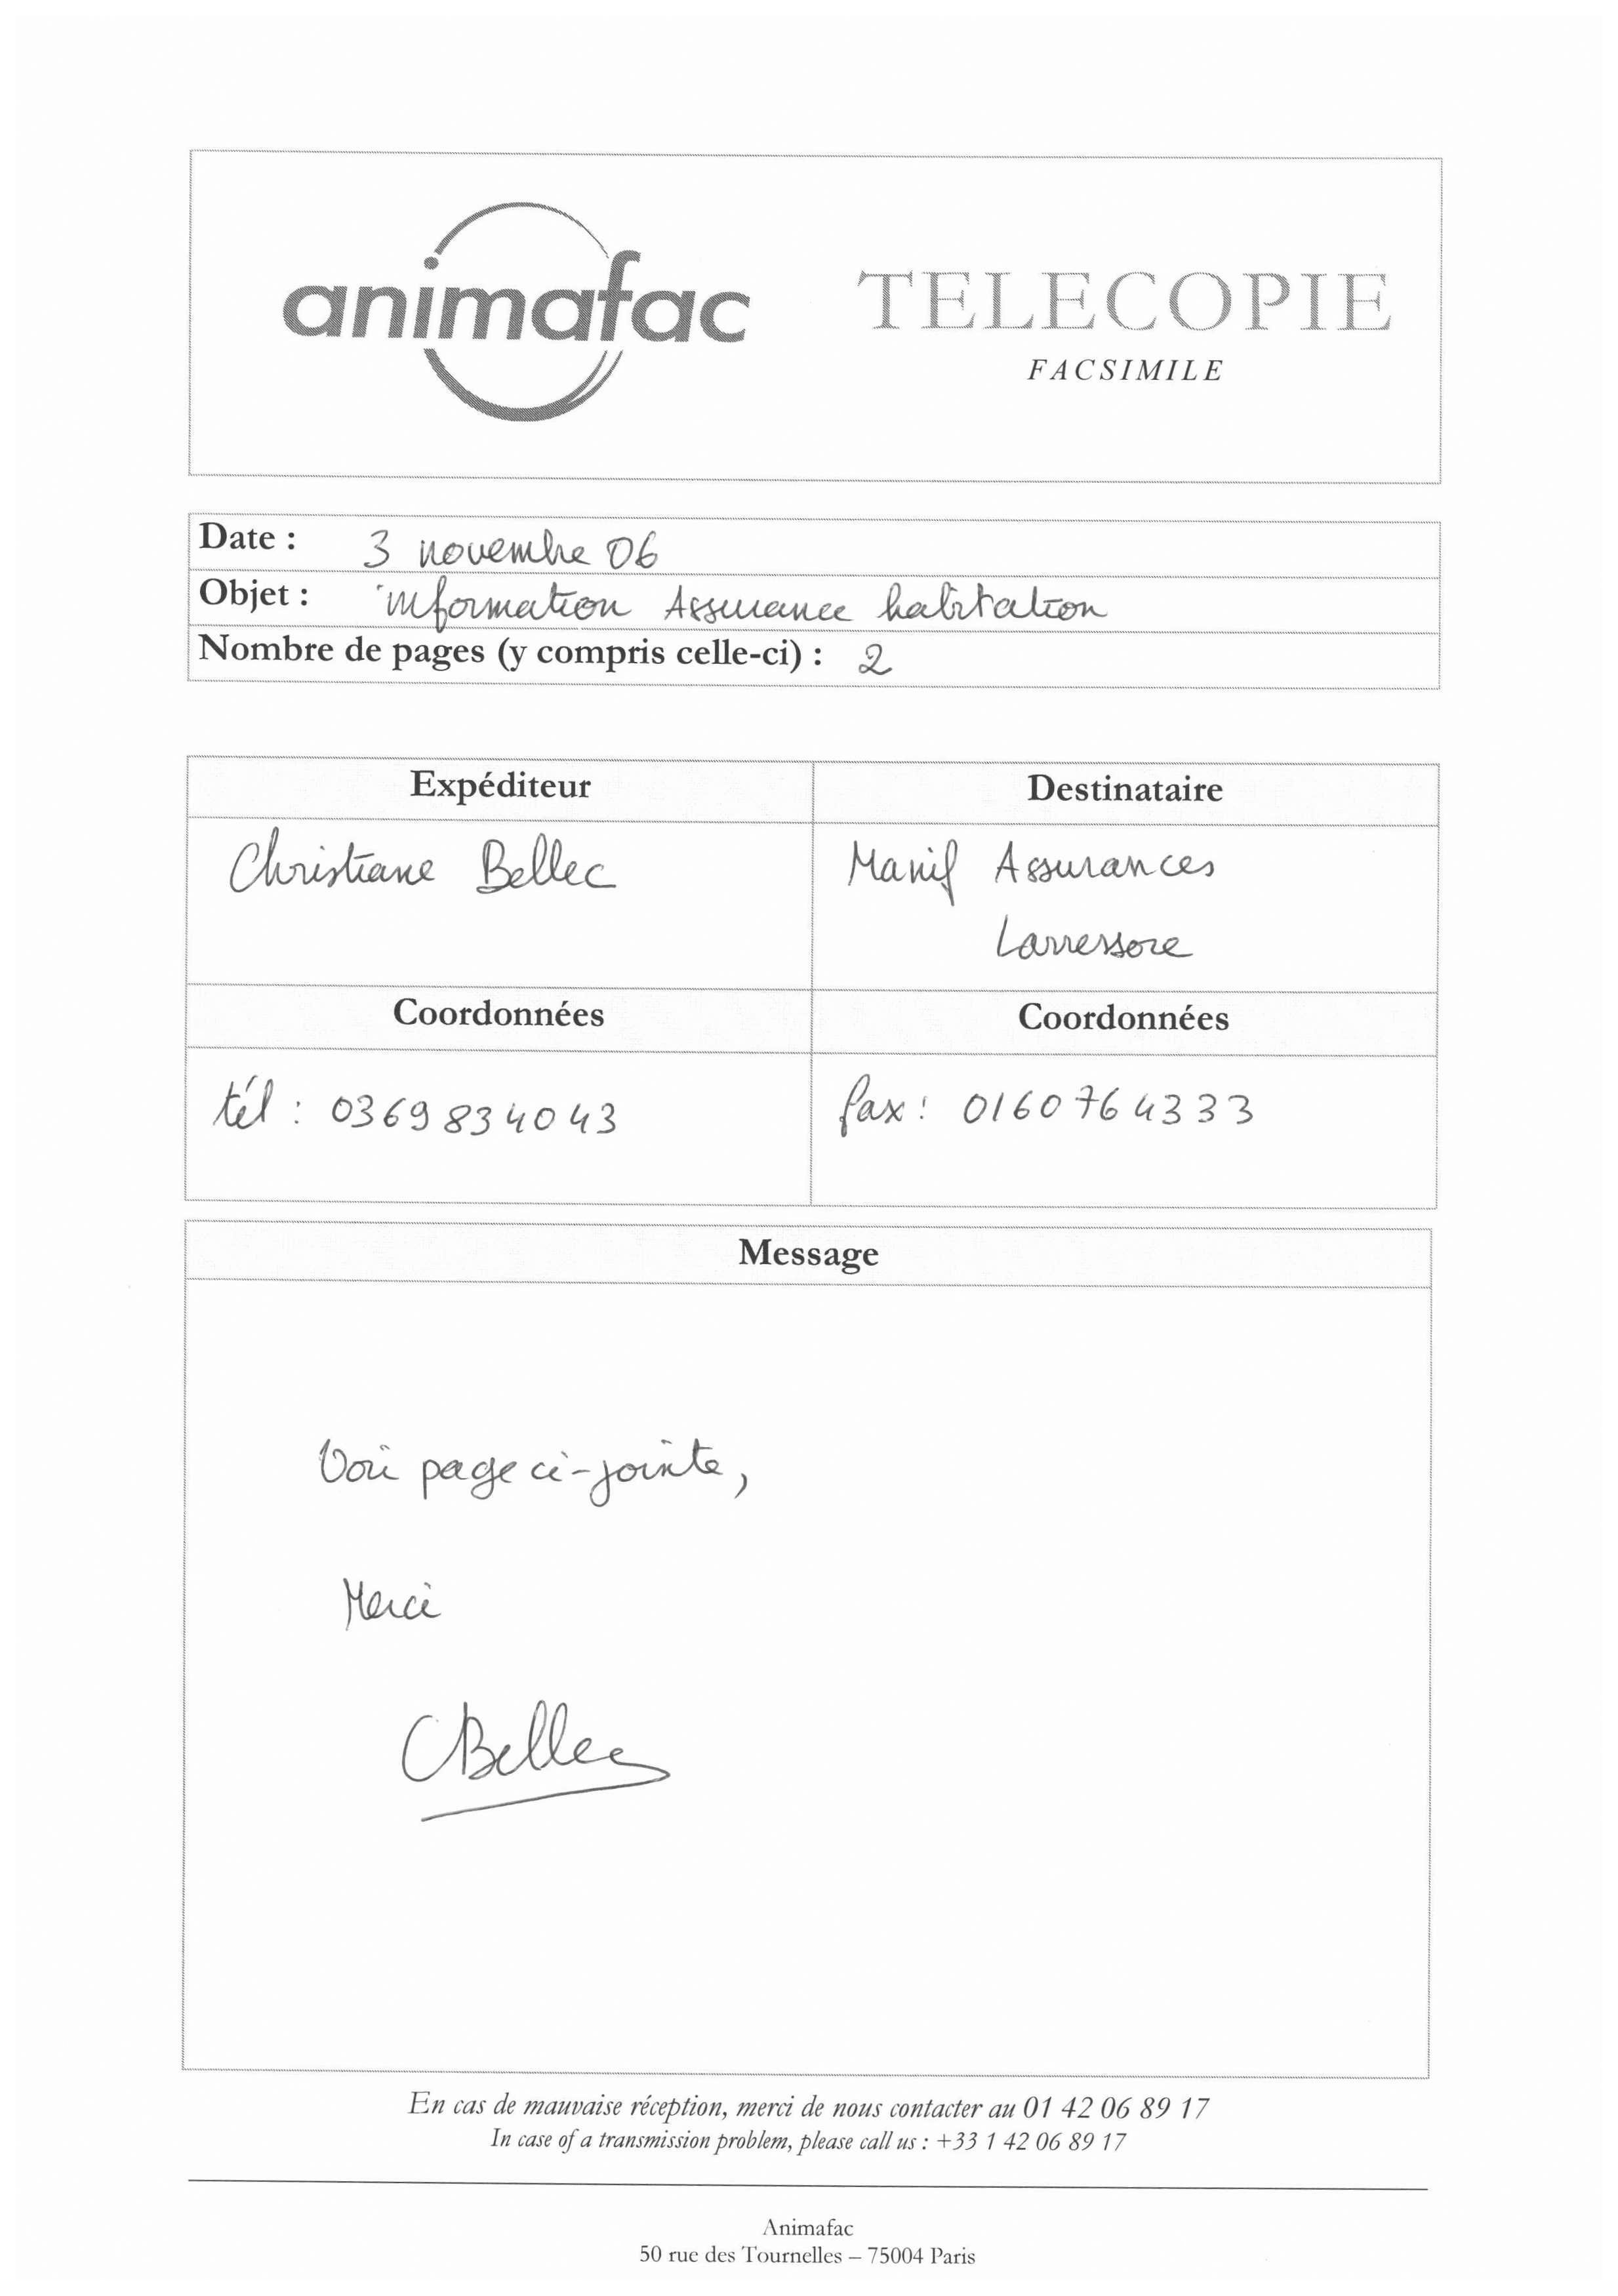 animafac
TELECOPIE
FACSIMILE
Date : 3 novembre 06
Objet : information Assurance habitation
Nombre de pages (y compris celle-ci) : 2
Expéditeur
Destinataire
Christiane Bellec
Manif Assurances
Larressore
Coordonnées
Coordonnées
tél : 0369834043
fax : 0160764333
Message
Voir page ci-jointe,
Merci
CBellec
En cas de mauvaise réception, merci de nous contacter au 01 42 06 89 17
In case of a transmission problem, please call us : +33 1 42 06 89 17
Animafac
50 rue des Tournelles – 75004 Paris